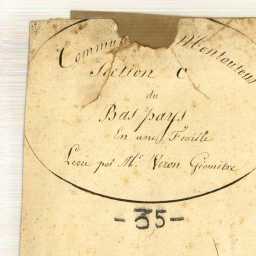 Commune Montautour
Section C
du
Bas pays
En une Feuille
Levé par Mr. Véron Géomètre
- 35 -